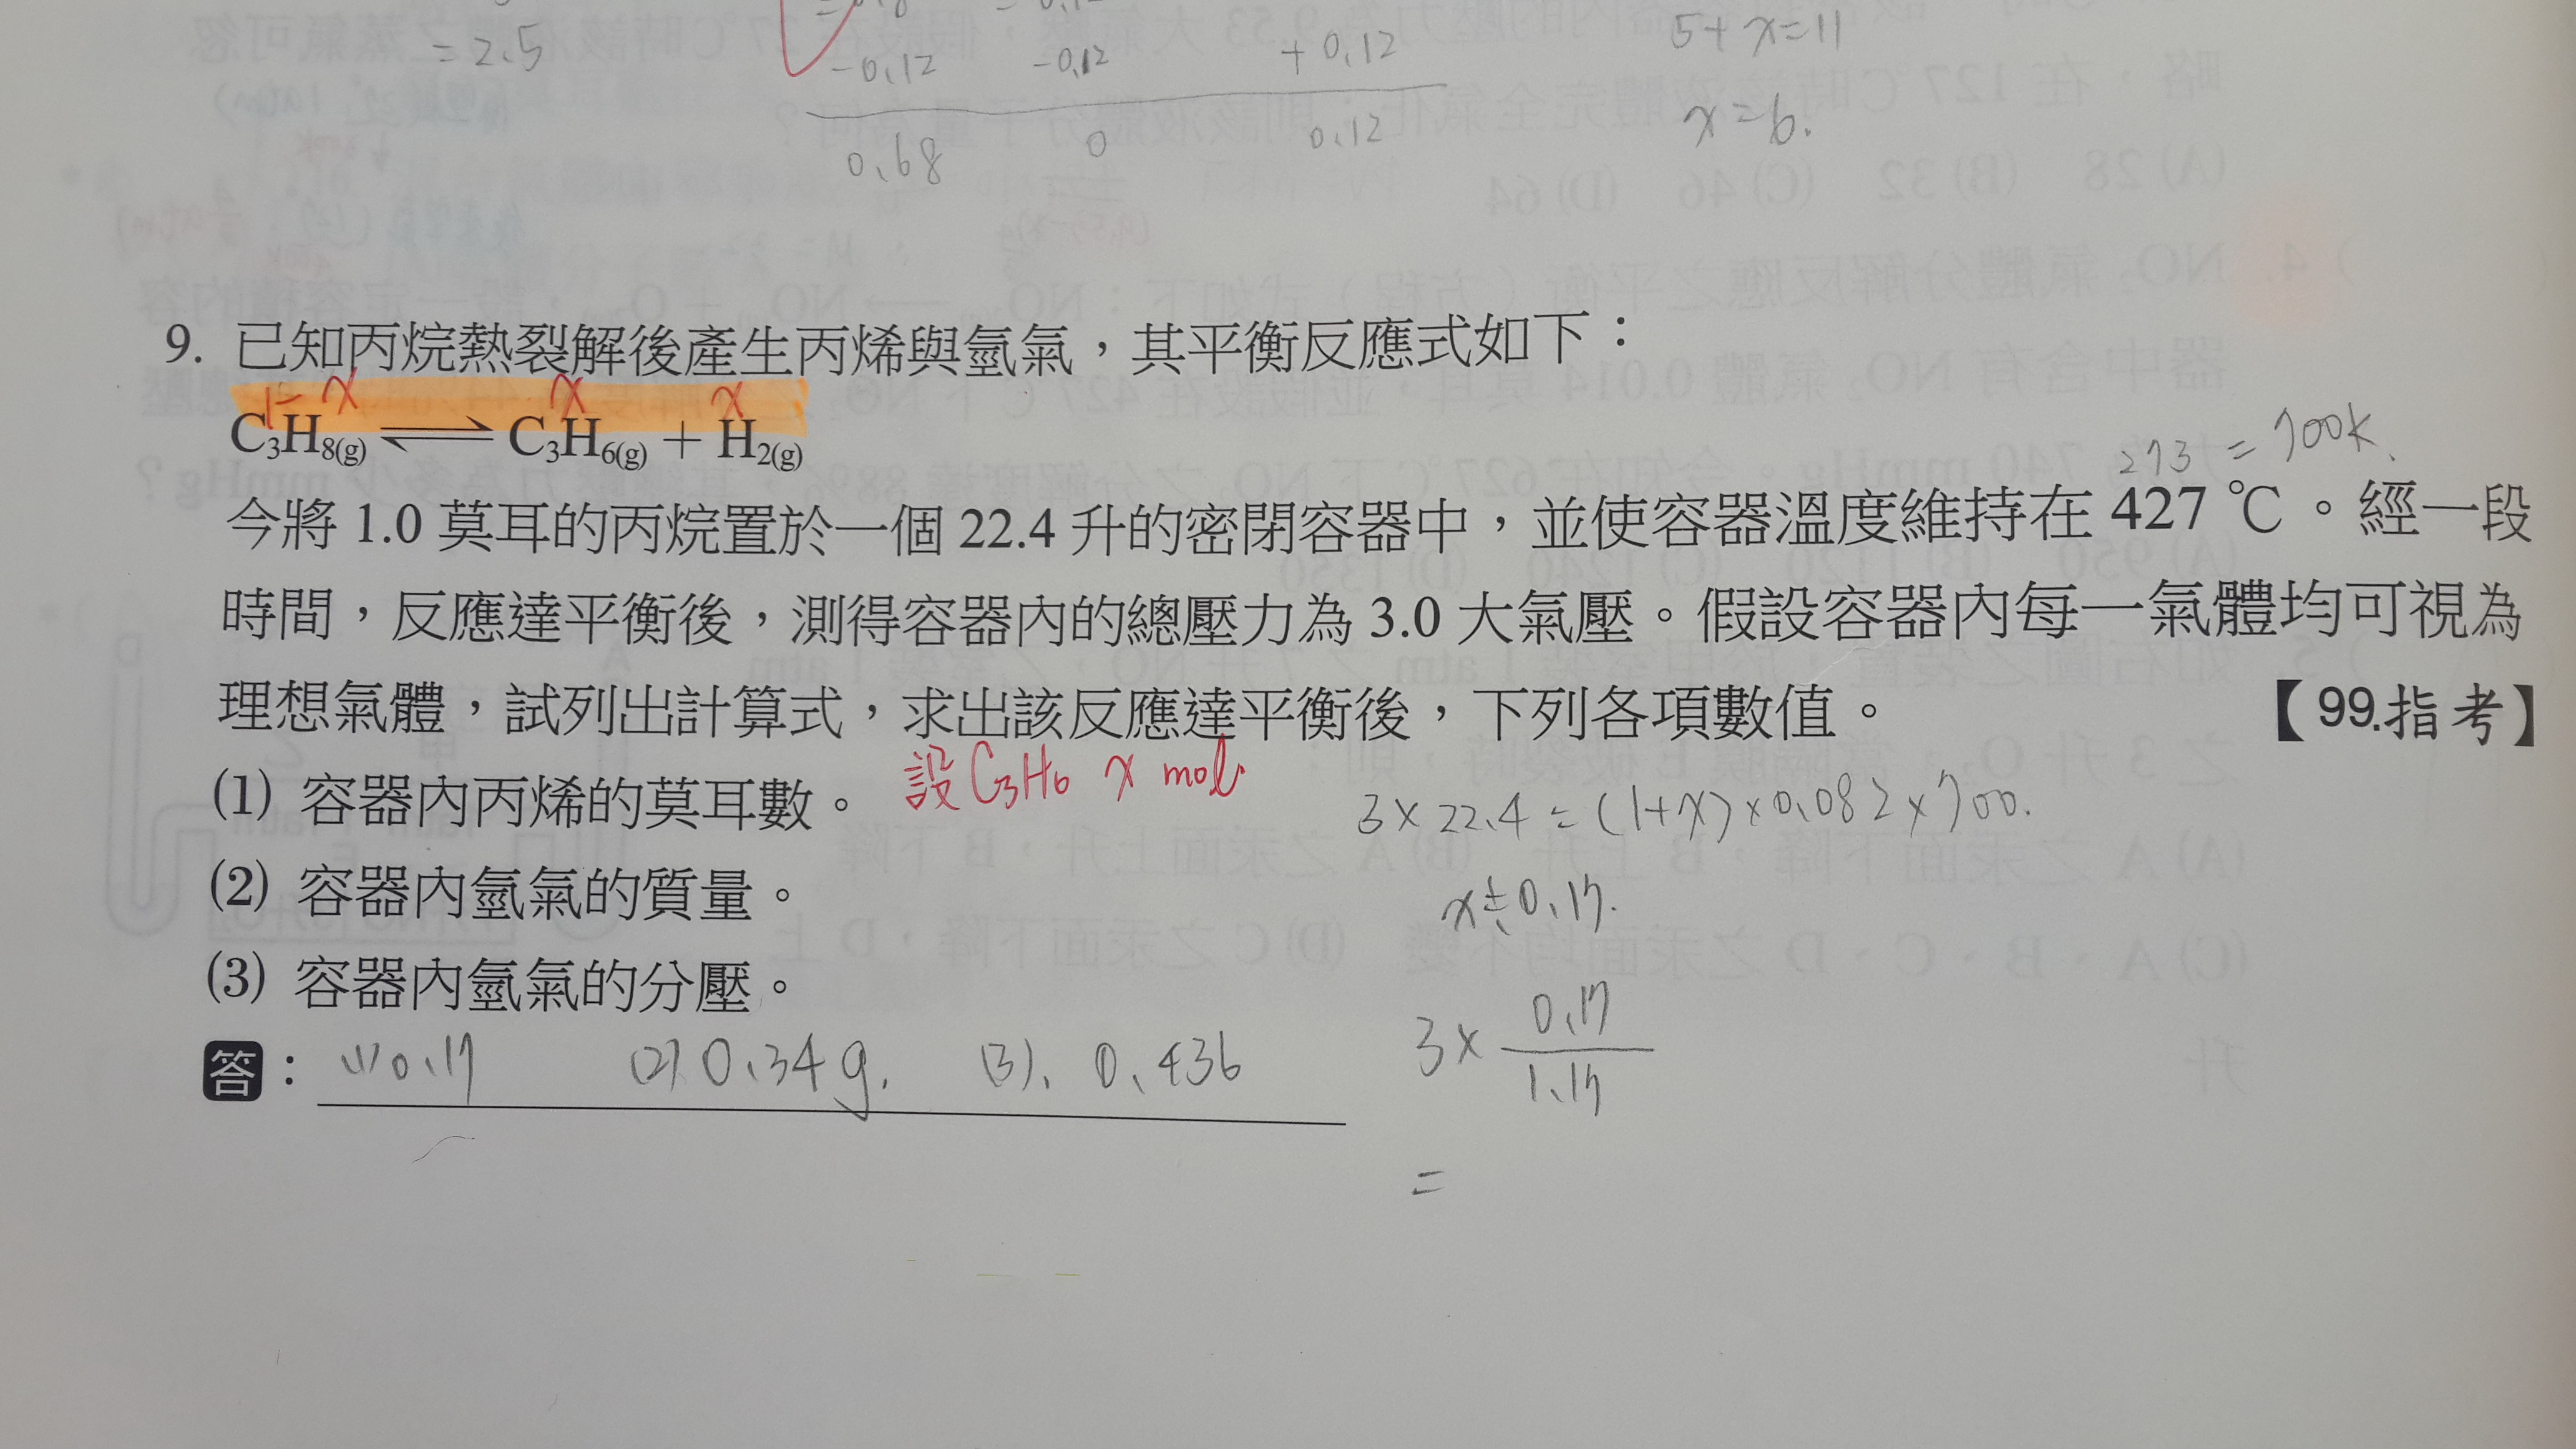 = 2.5
-0.12 -0.12 +0.12
0.68 0 0.12
5+x=11
x=6.
9. 已知丙烷熱裂解後產生丙烯與氫氣，其平衡反應式如下：
1-x x x
C₃H₈(g) ⇌ C₃H₆(g) + H₂(g)
273 = 700K.
今將 1.0 莫耳的丙烷置於一個 22.4 升的密閉容器中，並使容器溫度維持在 427 ℃。經一段
時間，反應達平衡後，測得容器內的總壓力為 3.0 大氣壓。假設容器內每一氣體均可視為
理想氣體，試列出計算式，求出該反應達平衡後，下列各項數值。 【99.指考】
(1) 容器內丙烯的莫耳數。 設C₃H₆ x mol
3×22.4=(1+x)×0.082×700.
(2) 容器內氫氣的質量。
x≒0.17.
(3) 容器內氫氣的分壓。
3× 0.17/1.17
答：(1) 0.17 (2) 0.34g. (3). 0.436
=